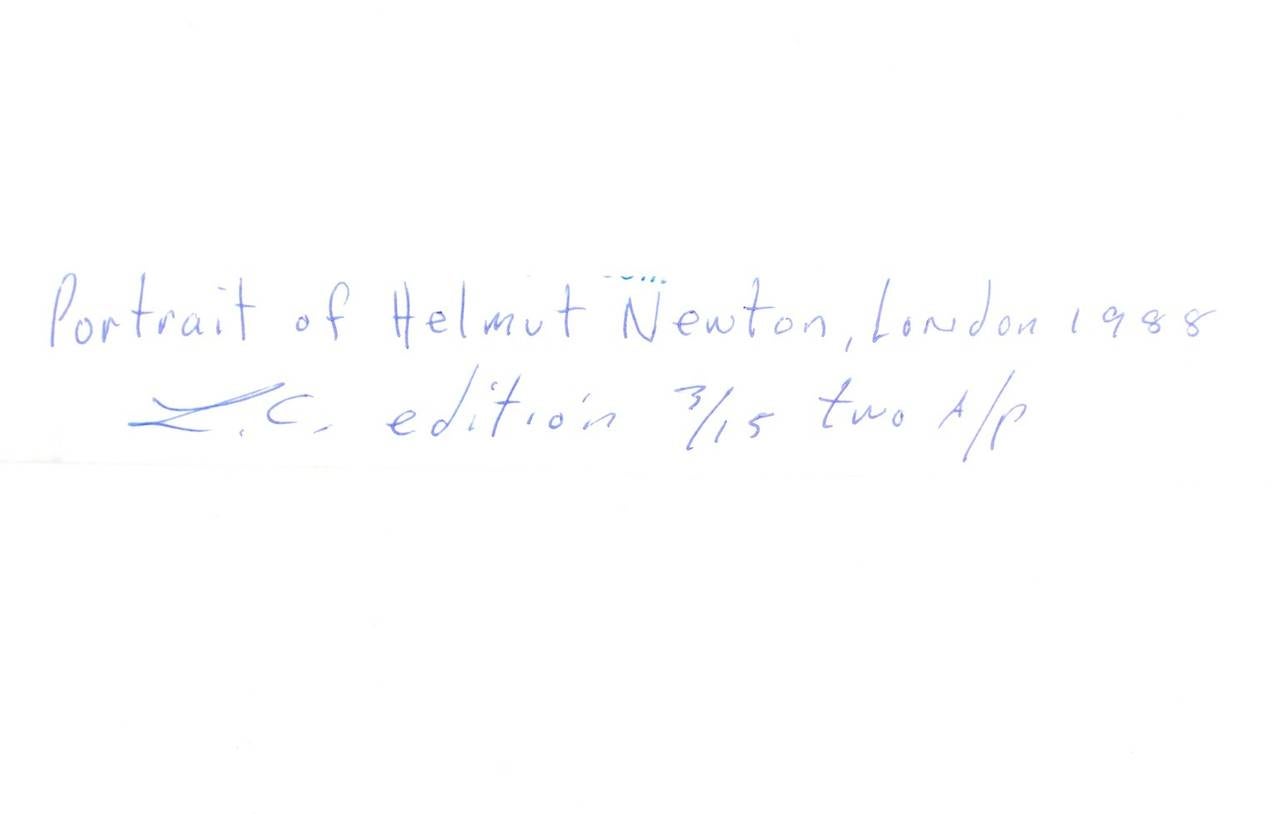 Portrait of Helmut Newton, London 1988
.C. edition 3/15 two A/P